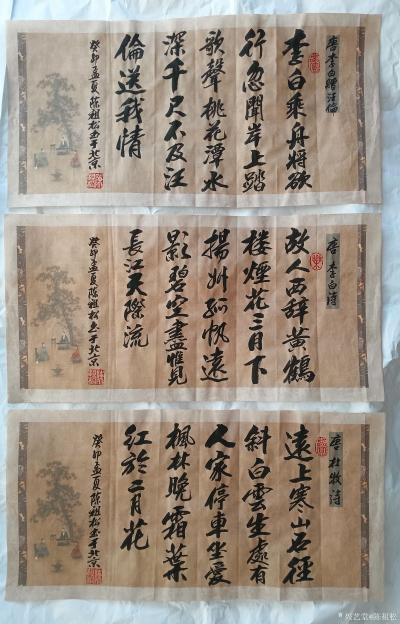 唐李白贈汪倫
李白乘舟將欲
行忽聞岸上踏
歌聲桃花潭水
深千尺不及汪
倫送我情
癸卯孟夏陳祖松书于北京
唐李白诗
故人西辞黄鶴
楼煙花三月下
揚州孤帆遠
影碧空盡惟見
長江天際流
癸卯孟夏陳祖松书于北京
唐杜牧詩
遠上寒山石徑
斜白雲生處有
人家停車坐愛
楓林晚霜葉
红於二月花
癸卯孟夏陳祖松书于北京